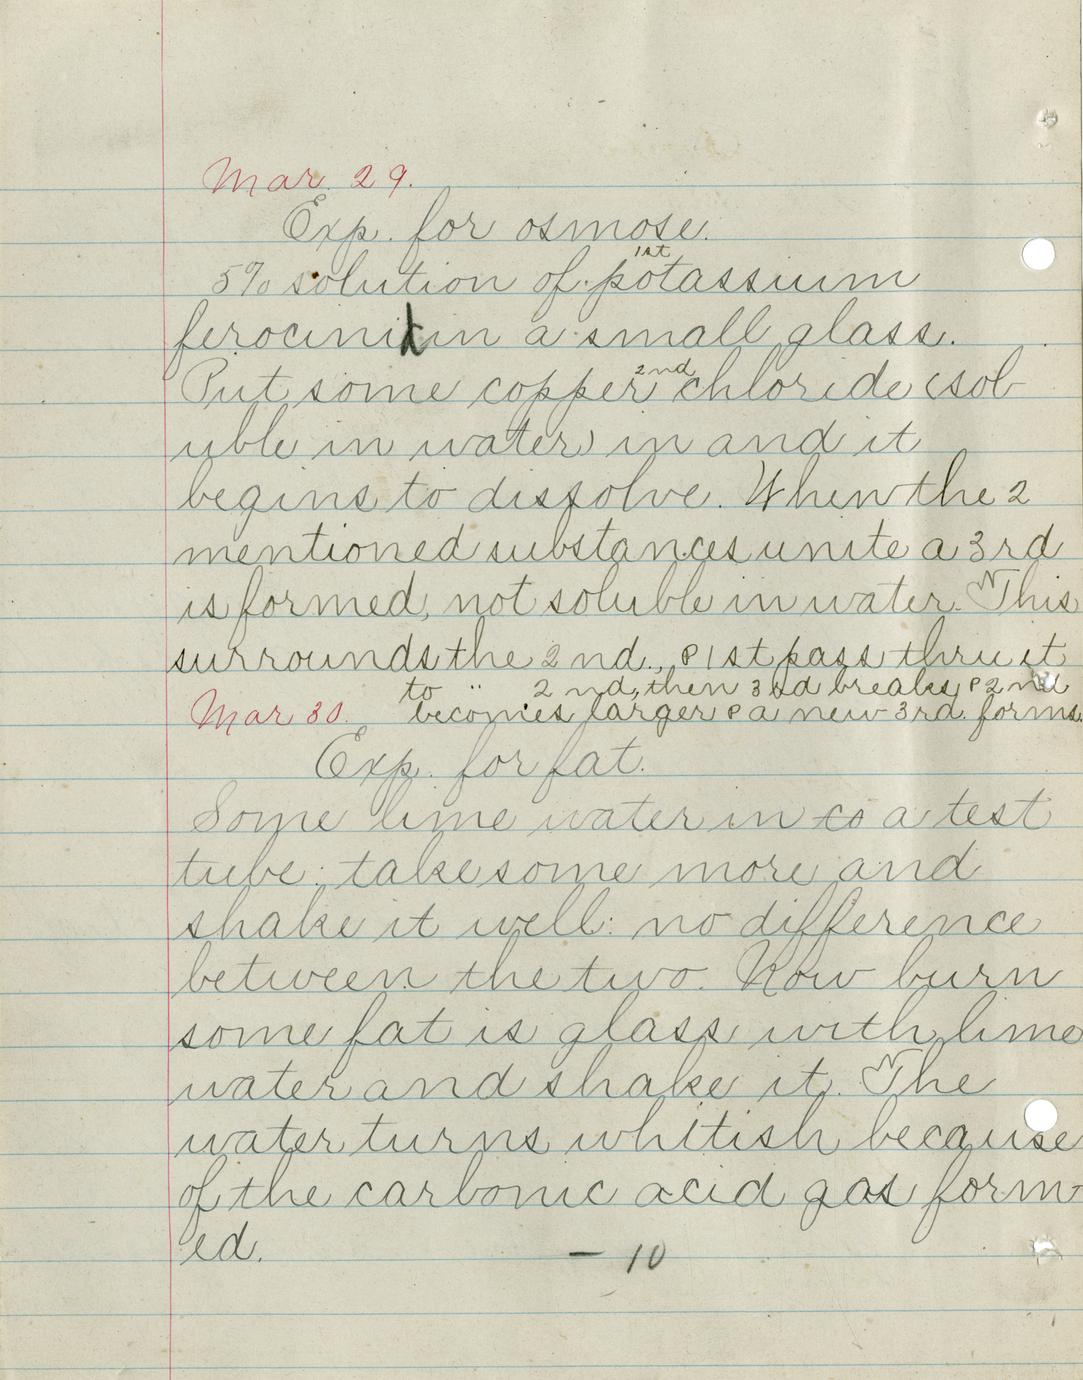 Mar. 29.
Exp. for osmose.
1st
5% solution of potassium
ferocini in a small glass.
2nd
Put some copper chloride (sol
uble in water) in and it
begins to dissolve. When the 2
mentioned substances unite a 3rd
is formed, not soluble in water. This
surrounds the 2nd., & 1st pass thru it
to " 2nd, then 3rd breaks & 2nd
Mar 30. becomes larger & a new 3rd. forms.
Exp. for fat.
Some lime water in co a test
tube; take some more and
shake it well: no difference
between the two. Now burn
some fat is glass with lime
water and shake it. The
water turns whitish because
of the carbonic acid gas form
ed.
— 10